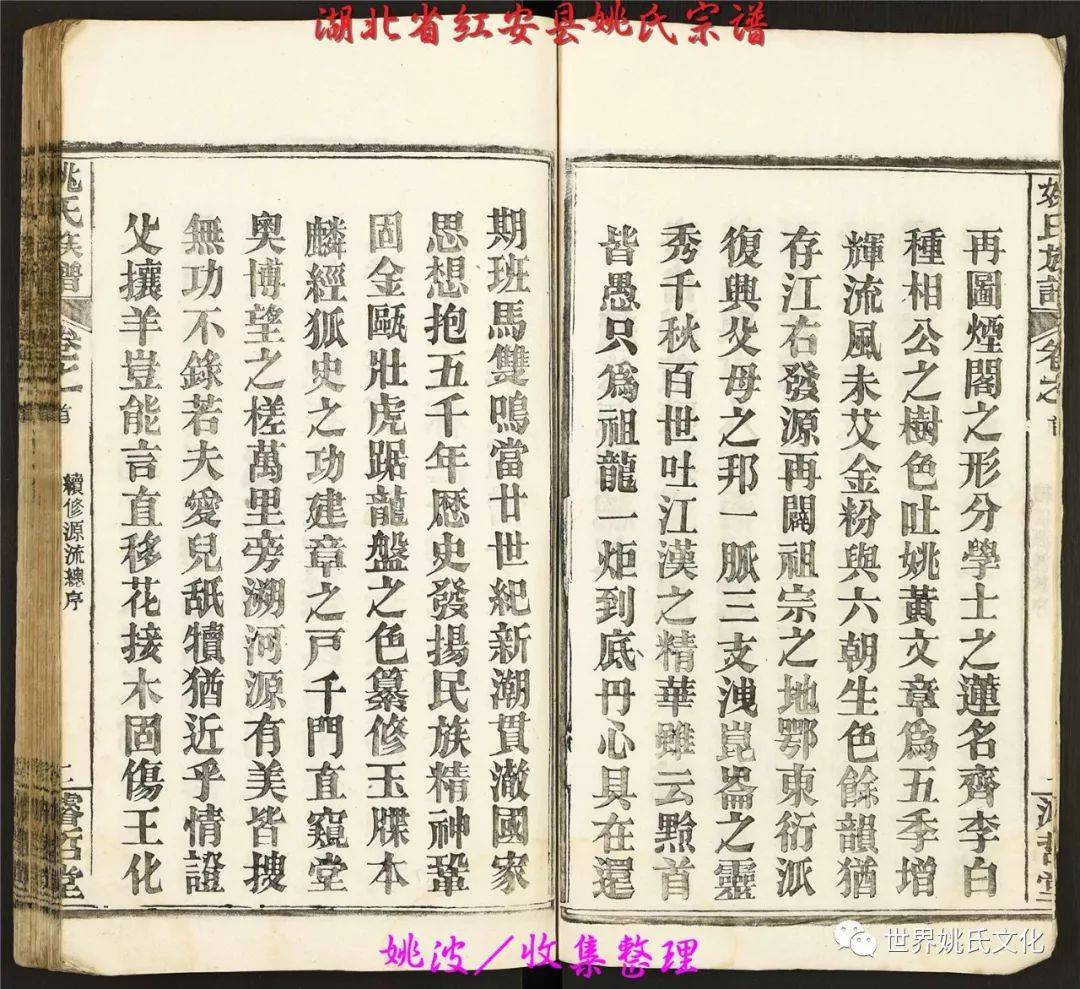 湖北省红安县姚氏宗谱
姚氏族譜
卷之首
睿哲堂
再圖煙閣之形分學士之蓮名齊李白
種相公之樹色吐姚黃文章爲五季增
輝流風未艾金粉與六朝生色餘韻猶
存江右發源再闢祖宗之地鄂東衍派
復興父母之邦一脈三支洩崑崙之靈
秀千秋百世吐江漢之精華雖云黔首
皆愚只爲祖龍一炬到底丹心具在還
期班馬雙鳴當廿世紀新潮貫澈國家
思想抱五千年歷史發揚民族精神鞏
固金甌壯虎踞龍盤之色纂修玉牒本
麟經狐史之功建章之戸千門直窺堂
奧博望之槎萬里旁溯河源有美皆搜
無功不錄若夫愛兒舐犢猶近乎情證
父攘羊豈能言直移花接木固傷王化
姚氏族譜
卷之首
續修源流總序
二
睿哲堂
姚波／收集整理
世界姚氏文化